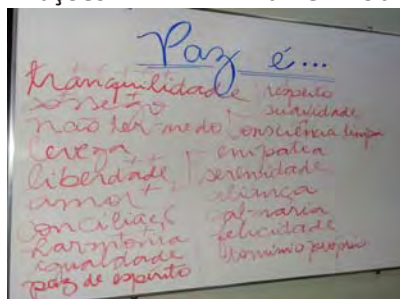 Paz é...
tranquilidade
sossego
não ter medo
leveza
liberdade
amor
conciliação
harmonia
igualdade
paz de espírito
respeito
suavidade
consciência limpa
empatia
serenidade
aliança
calmaria
felicidade
domínio próprio